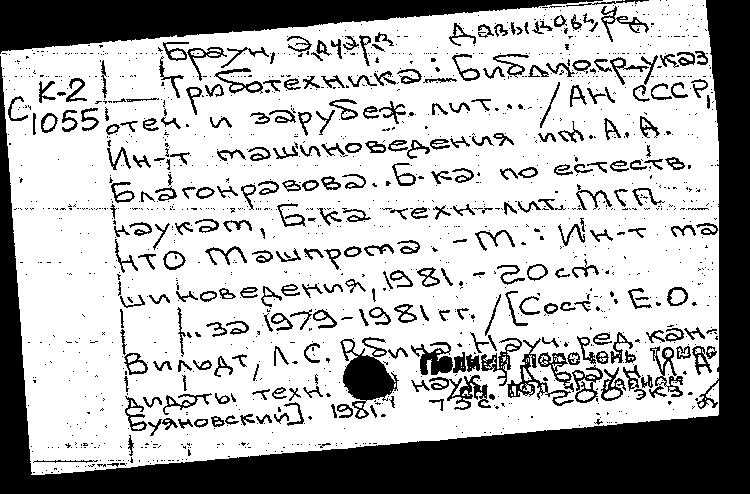 Браун, Эдуард Давыдович, ред.
К-2
С 1055
Триботехника: Библиогр. указ.
отеч. и зарубеж. лит... / АН СССР,
Ин-т машиноведения им. А. А.
Благонравова.. Б-ка по естеств.
наукам, Б-ка техн. лит. МГП
НТО Машпрома. - М.: Ин-т ма
шиноведения, 1981. - 20 см.
... за 1979-1981 гг. / [Сост.: Е.О.
Вильдт, Л.С. Науч. ред. кан-
Полный перечень томов
дидаты техн. наук Э.Д. Браун, И. А.
см. под заглавием
Буяновский]. 1981. 73 с. 200 экз.